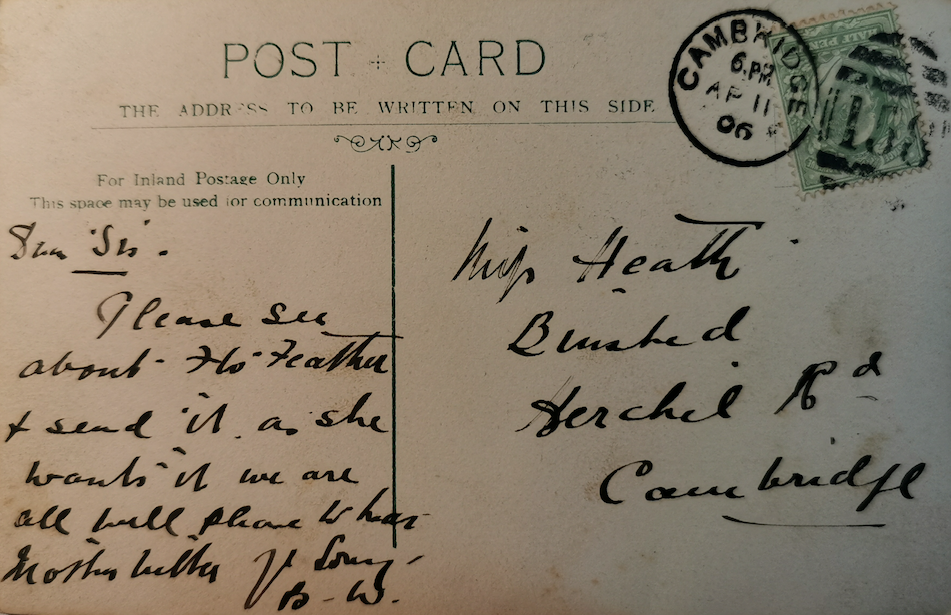 POST CARD
THE ADDRESS TO BE WRITTEN ON THIS SIDE
CAMBRIDGE
6.PM
AP 11
06
HALF PENNY
13
For Inland Postage Only
This space may be used for communication
Dear Sis.
Please see
about Flo Feather
& send it as she
wants it we are
all well please to hear
Mother better
B. W.
Miss Heath
Herchel Rd
Cambridge